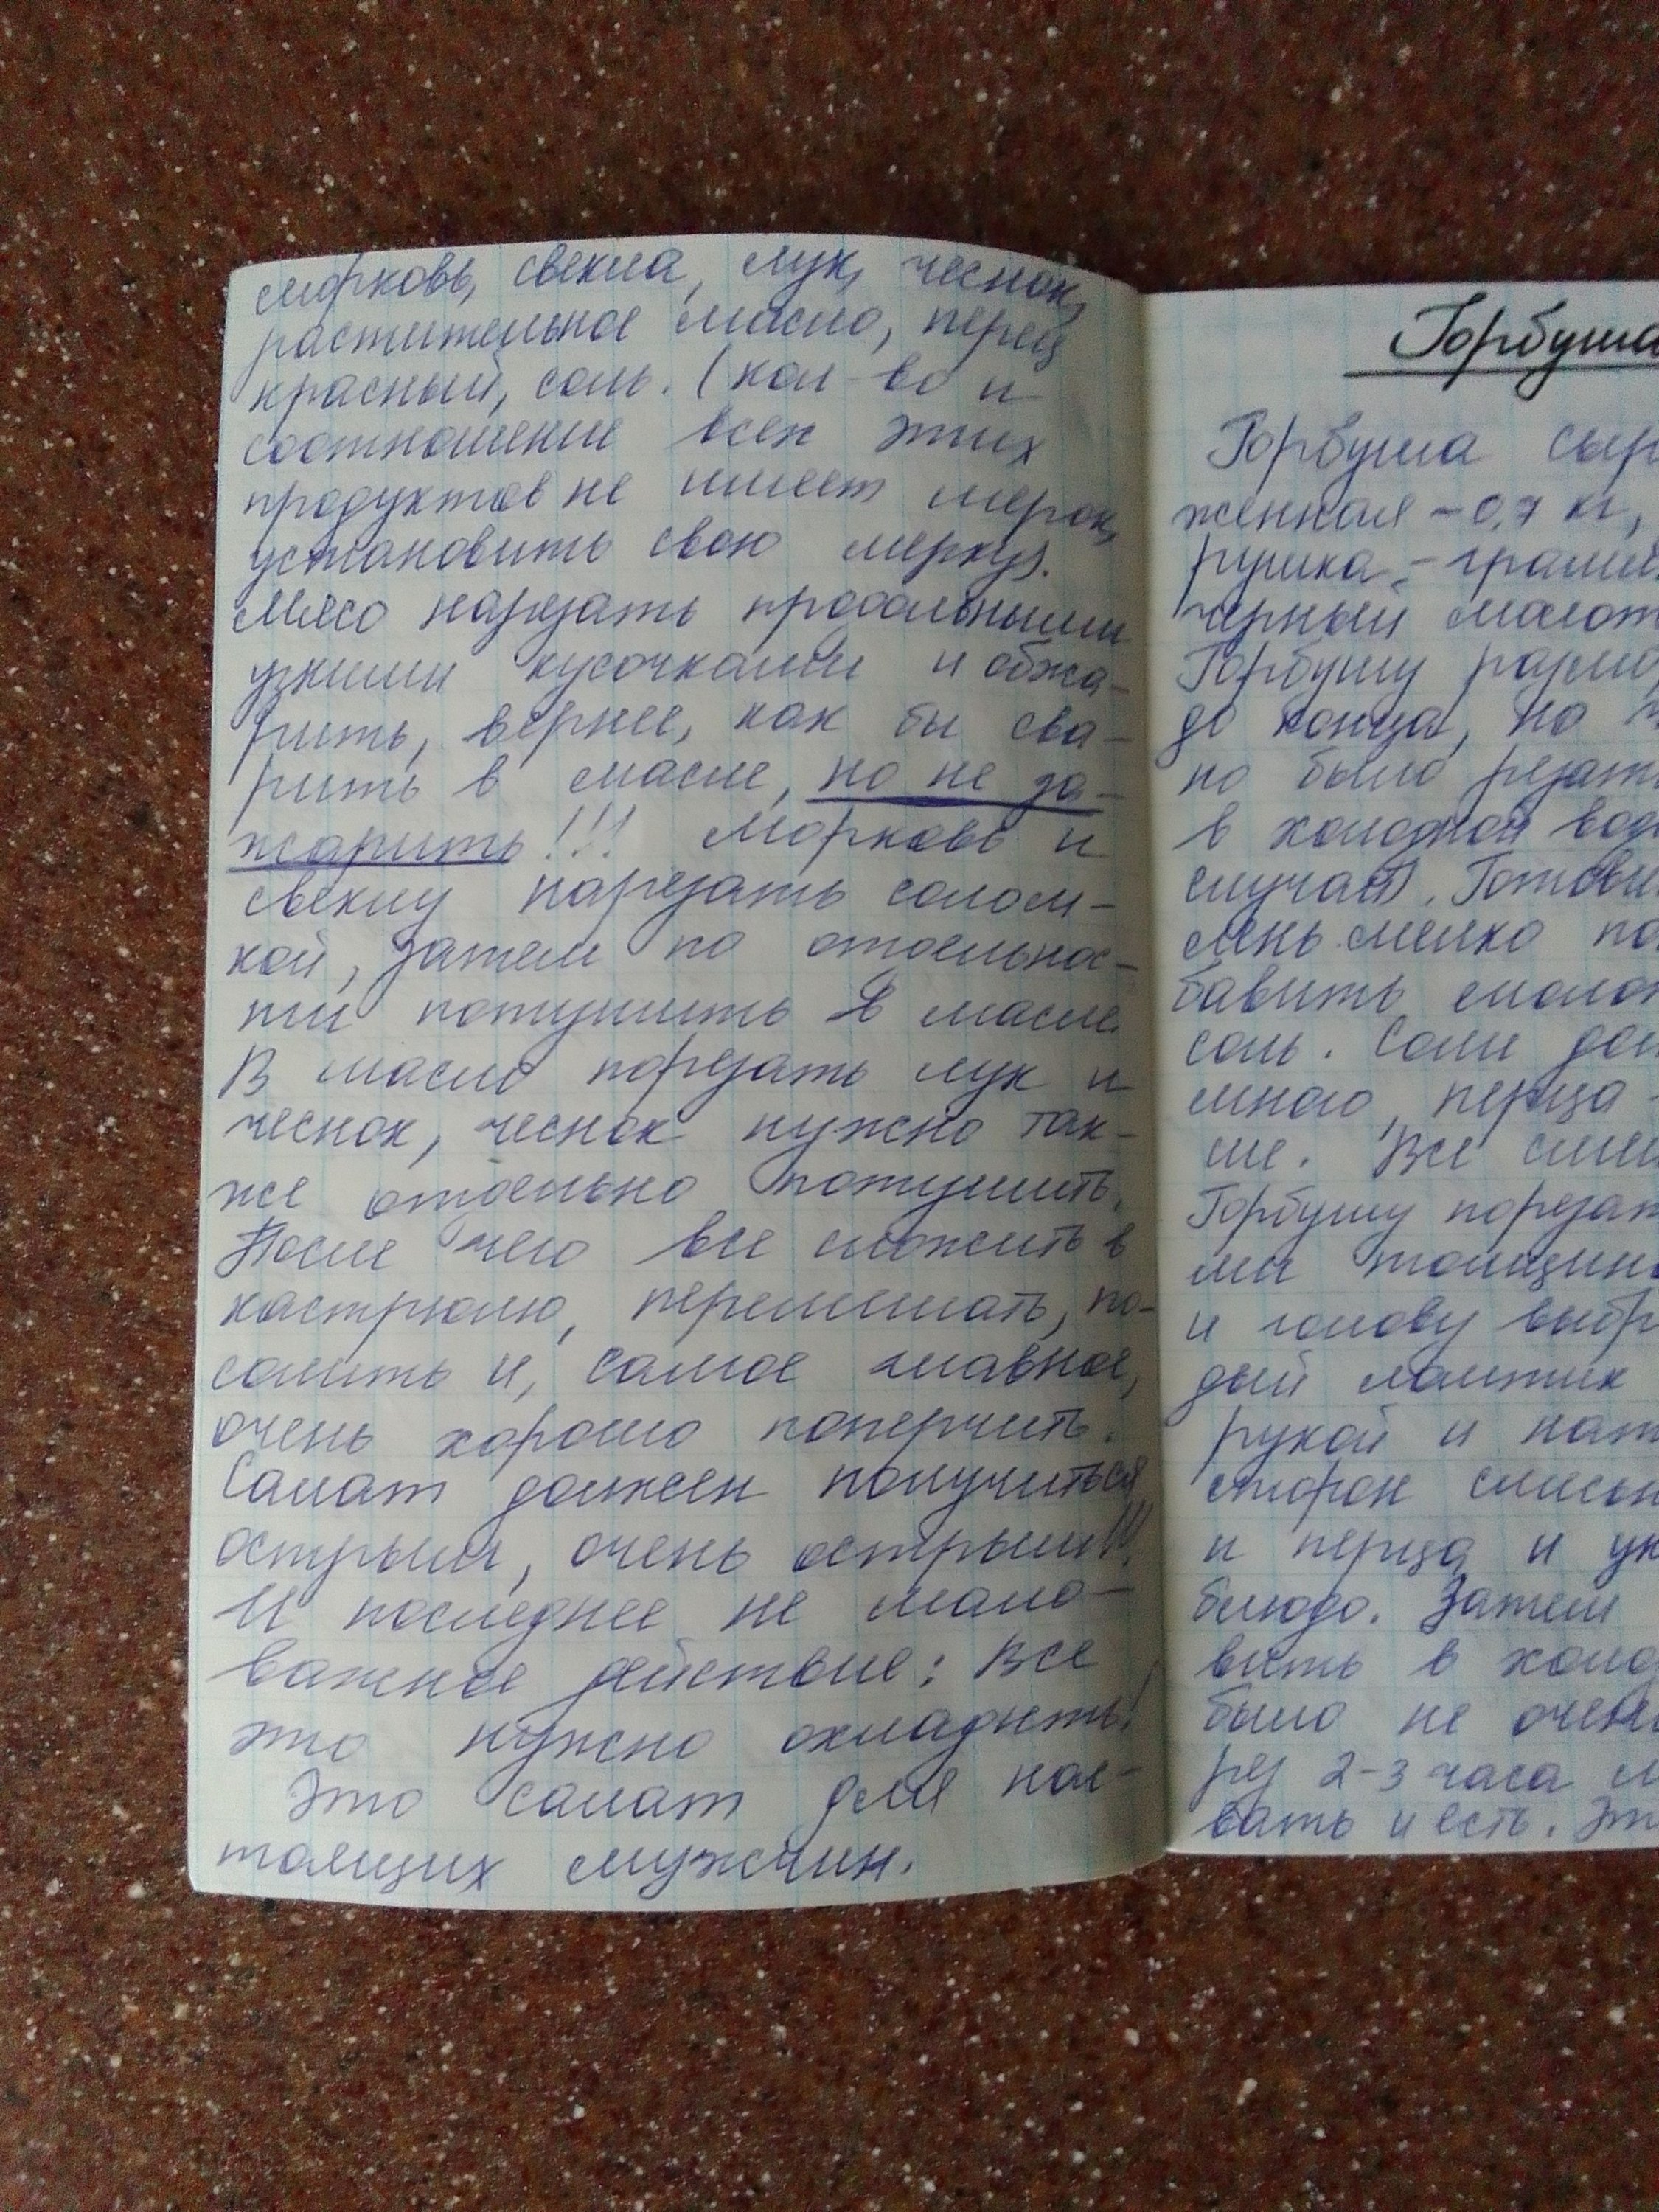 морковь, свекла, лук, чеснок,
растительное масло, перец
красный, соль. (кол-во и
соотношение всех этих
продуктов не имеет мерок,
установить свою мерку).
Мясо нарезать продольными
узкими кусочками и обжа-
рить, вернее, как бы сва-
рить в масле, но не за-
жарить!!! Морковь и
свеклу нарезать солом-
кой, затем по отдельнос-
ти потушить в масле.
В масло порезать лук и
чеснок, чеснок нужно так-
же отдельно потушить.
После чего все сложить в
кастрюлю, перемешать, по-
солить и, самое главное,
очень хорошо поперчить.
Салат должен получиться
острым, очень острым!!!
И последнее не мало-
важное действие: все
это нужно охладить!
Это салат для нас-
тоящих мужчин.
Горбуша
Горбуша сыр
женная - 0,7 кг,
рушка - грамм
черный молот
Горбушу размо
до конца, но
но было резат
в холодной вод
случай). Готови
лень мелко по
бавить молот
соль. Соли дол
много, перца -
ше. Все сме
Горбушу порезат
ми толщин
и голову выбр
дый ломтик
рукой и нат
сторон смесь
и перца и ук
блюдо. Затем
вить в холод
было не очень
рез 2-3 часа м
вать и есть. Эт